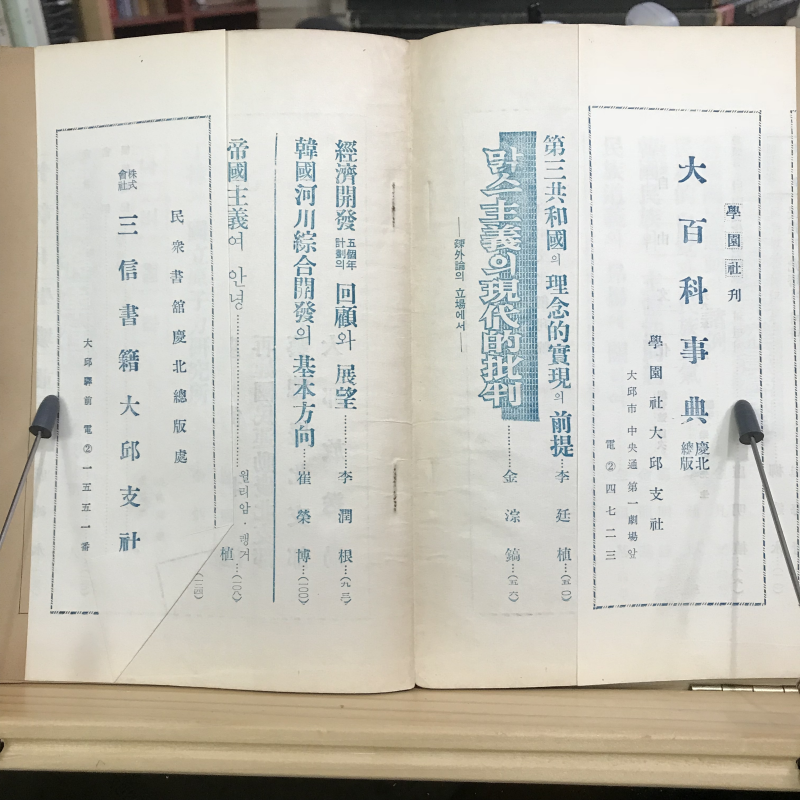 學園社刊
大百科事典 慶北總販
學園社大邱支社
大邱市中央通第一劇場앞
電②四七二三
第三共和國의 理念的實現의 前提…李廷植…(五〇)
맑스主義의現代的批判…………金淙鎬…(五六)
——課外論의 立場에서——
經濟開發五個年計劃의 回顧와 展望………李潤根…(九三)
韓國河川綜合開發의 基本方向…崔榮博…(一〇〇)
帝國主義여 안녕
윌리암·맹거
植…(一〇八)
民衆書舘慶北總販處
株式會社 三信書籍大邱支社
大邱驛前 電②一五五一番